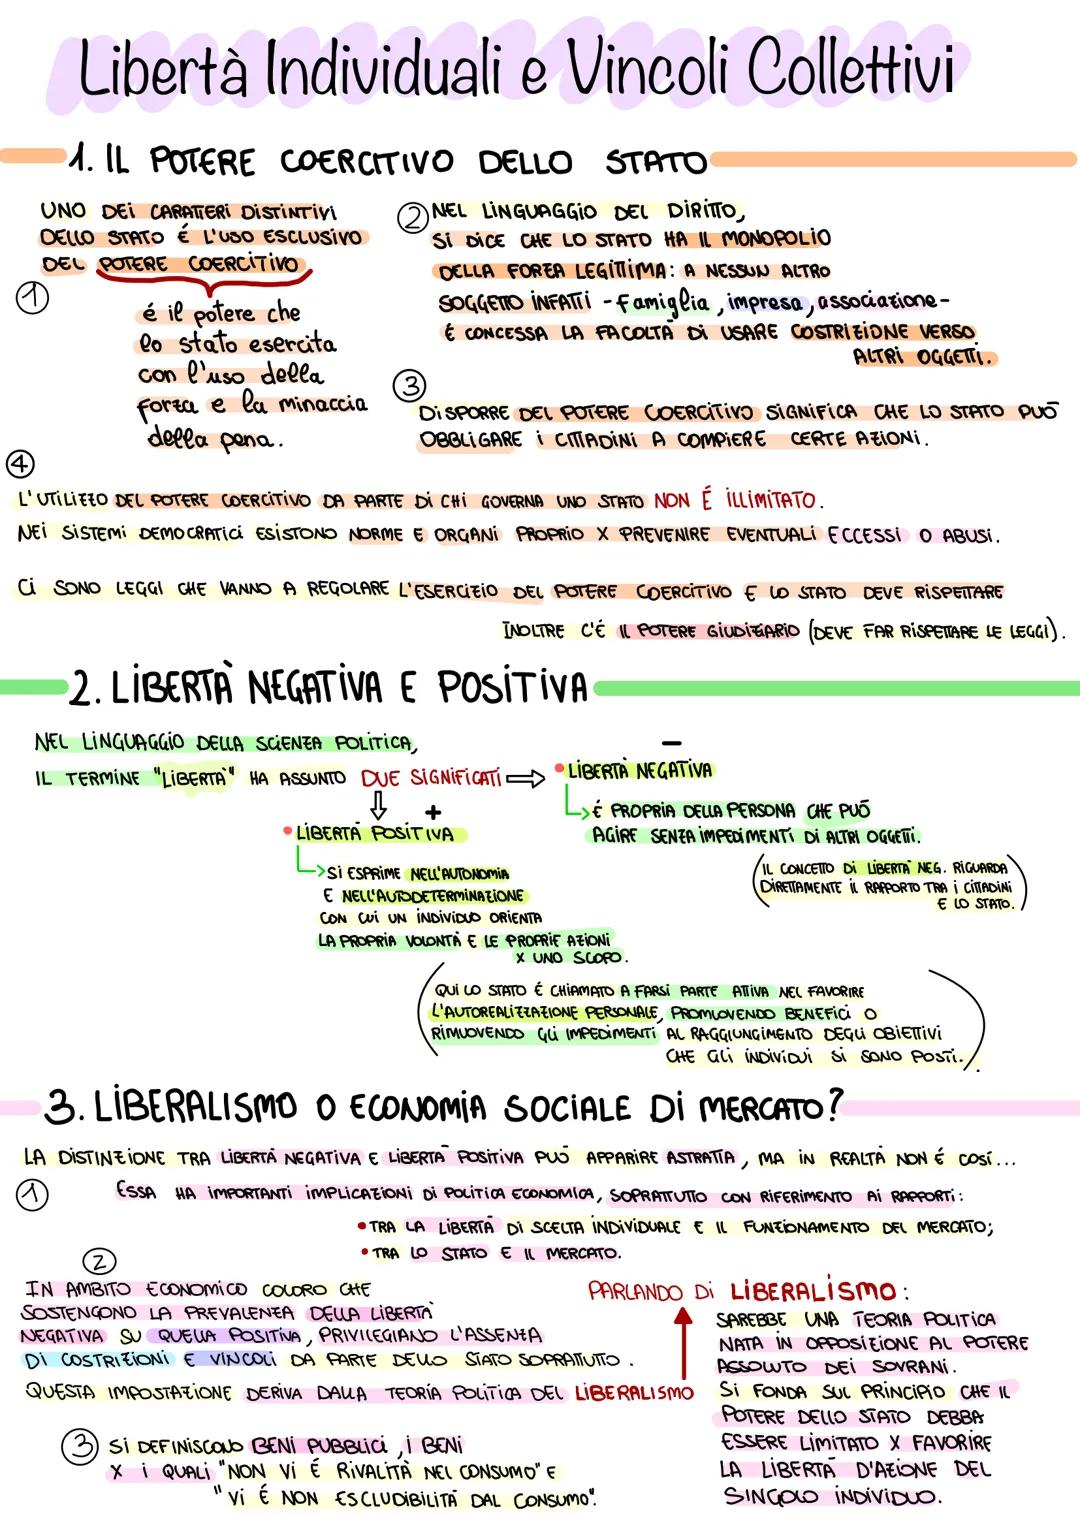 Libertà Individuali e Vincoli Collettivi
1. IL POTERE COERCITIVO DELLO STATO
UNO DEI CARATTERI DISTINTIVI
DELLO STATO É L'USO ESCLUSIVO
DEL POTERE COERCITIVO
1
é il potere che
lo stato esercita
con l'uso della
forza e la minaccia
della pena.
2 NEL LINGUAGGIO DEL DIRITTO,
SI DICE CHE LO STATO HA IL MONOPOLIO
DELLA FORZA LEGITTIMA: A NESSUN ALTRO
SOGGETTO INFATTI - famiglia, impresa, associazione -
É CONCESSA LA FACOLTÀ DI USARE COSTRIZIONE VERSO
ALTRI OGGETTI.
3
DISPORRE DEL POTERE COERCITIVO SIGNIFICA CHE LO STATO PUÓ
OBBLIGARE I CITTADINI A COMPIERE CERTE AZIONI.
4
L'UTILIZZO DEL POTERE COERCITIVO DA PARTE DI CHI GOVERNA UNO STATO NON É ILLIMITATO.
NEI SISTEMI DEMOCRATICI ESISTONO NORME E ORGANI PROPRIO X PREVENIRE EVENTUALI ECCESSI O ABUSI.
CI SONO LEGGI CHE VANNO A REGOLARE L'ESERCIZIO DEL POTERE COERCITIVO E LO STATO DEVE RISPETTARE
INOLTRE C'É IL POTERE GIUDIZIARIO (DEVE FAR RISPETTARE LE LEGGI).
2. LIBERTÀ NEGATIVA E POSITIVA
NEL LINGUAGGIO DELLA SCIENZA POLITICA,
IL TERMINE "LIBERTÀ" HA ASSUNTO DUE SIGNIFICATI ⇒
–
• LIBERTÀ NEGATIVA
É PROPRIA DELLA PERSONA CHE PUÓ
AGIRE SENZA IMPEDIMENTI DI ALTRI OGGETTI.
(IL CONCETTO DI LIBERTÀ NEG. RIGUARDA
DIRETTAMENTE IL RAPPORTO TRA I CITTADINI
E LO STATO.)
+
• LIBERTÀ POSITIVA
SI ESPRIME NELL'AUTONOMIA
E NELL'AUTODETERMINAZIONE
CON CUI UN INDIVIDUO ORIENTA
LA PROPRIA VOLONTÀ E LE PROPRIE AZIONI
X UNO SCOPO.
(QUI LO STATO É CHIAMATO A FARSI PARTE ATTIVA NEL FAVORIRE
L'AUTOREALIZZAZIONE PERSONALE, PROMUOVENDO BENEFICI O
RIMUOVENDO GLI IMPEDIMENTI AL RAGGIUNGIMENTO DEGLI OBIETTIVI
CHE GLI INDIVIDUI SI SONO POSTI.)
3. LIBERALISMO O ECONOMIA SOCIALE DI MERCATO?
LA DISTINZIONE TRA LIBERTÀ NEGATIVA E LIBERTÀ POSITIVA PUÓ APPARIRE ASTRATTA, MA IN REALTÀ NON É COSÍ...
1
ESSA HA IMPORTANTI IMPLICAZIONI DI POLITICA ECONOMICA, SOPRATTUTTO CON RIFERIMENTO AI RAPPORTI:
• TRA LA LIBERTÀ DI SCELTA INDIVIDUALE E IL FUNZIONAMENTO DEL MERCATO;
• TRA LO STATO E IL MERCATO.
2
IN AMBITO ECONOMICO COLORO CHE
SOSTENGONO LA PREVALENZA DELLA LIBERTÀ
NEGATIVA SU QUELLA POSITIVA, PRIVILEGIANO L'ASSENZA
DI COSTRIZIONI E VINCOLI DA PARTE DELLO STATO SOPRATTUTTO.
QUESTA IMPOSTAZIONE DERIVA DALLA TEORIA POLITICA DEL LIBERALISMO
PARLANDO DI LIBERALISMO:
SAREBBE UNA TEORIA POLITICA
NATA IN OPPOSIZIONE AL POTERE
ASSOLUTO DEI SOVRANI.
SI FONDA SUL PRINCIPIO CHE IL
POTERE DELLO STATO DEBBA
ESSERE LIMITATO X FAVORIRE
LA LIBERTÀ D'AZIONE DEL
SINGOLO INDIVIDUO.
3 SI DEFINISCONO BENI PUBBLICI, I BENI
X I QUALI "NON VI É RIVALITÀ NEL CONSUMO" E
"VI É NON ESCLUDIBILITÀ DAL CONSUMO".